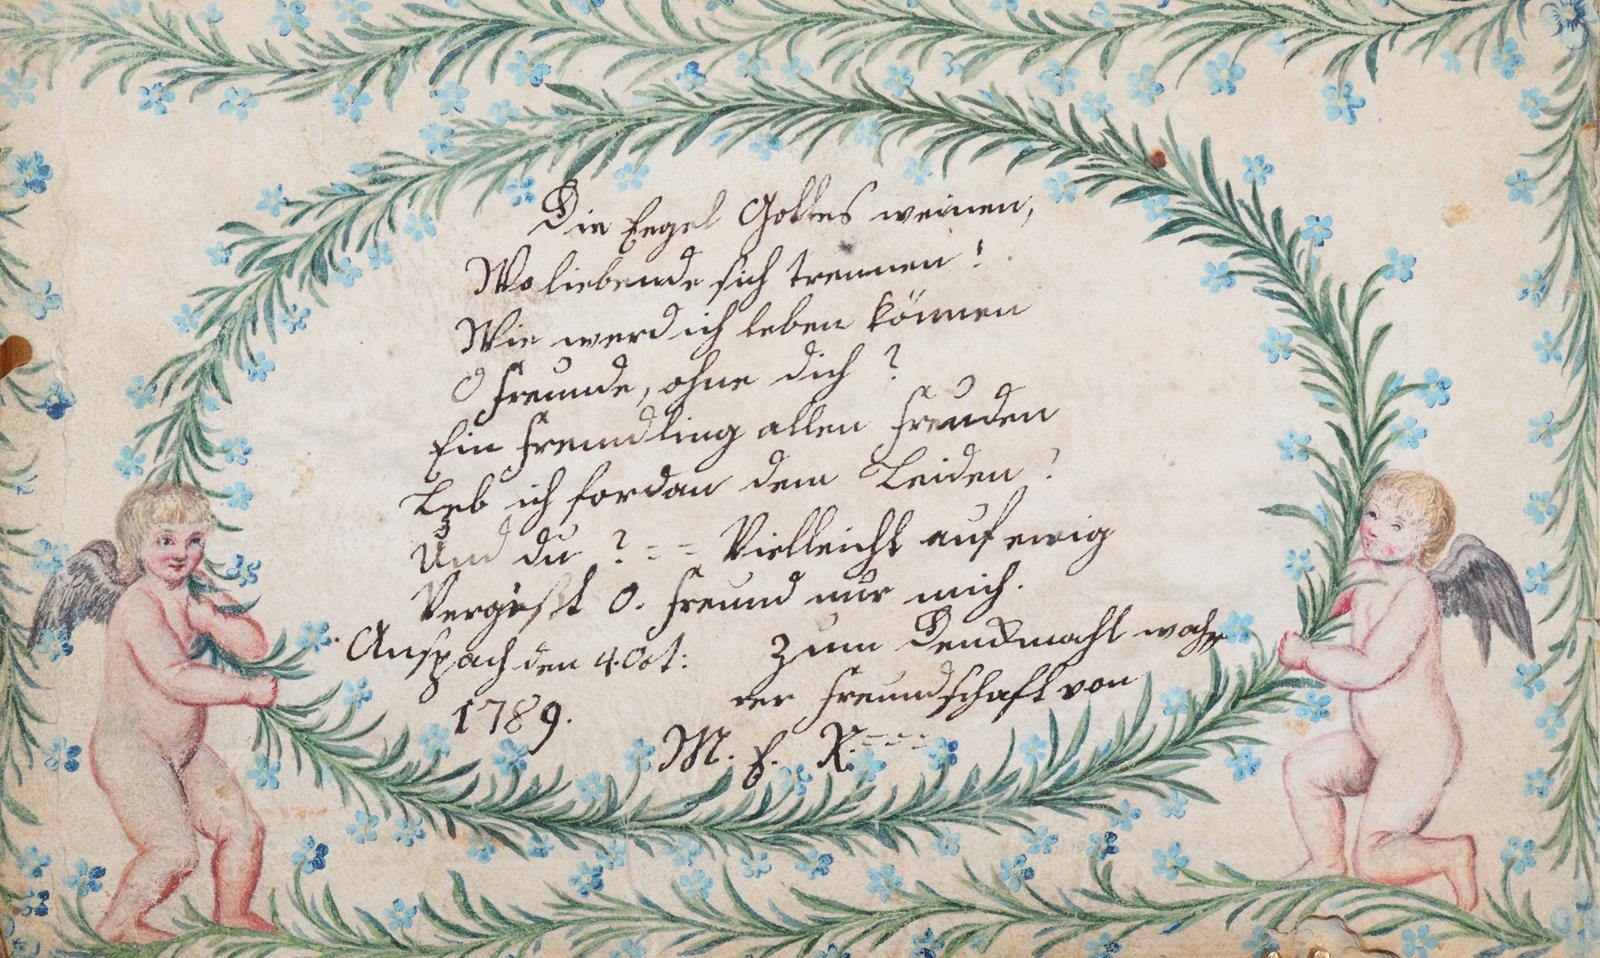 Die Engel Gottes weinen,
Wo liebende sich trennen!
Wie werd ich leben können
O freunde, ohne dich?
Ein fremdling allen freuden
Leb ich fordan dem Leiden!
Und du? = = Vielleicht auf ewig
Vergist O. freund nur mich.
Anspach den 4. Oct: Zum Denckmahl wah
1789. rer freundschaft von
M. E. R. - - -